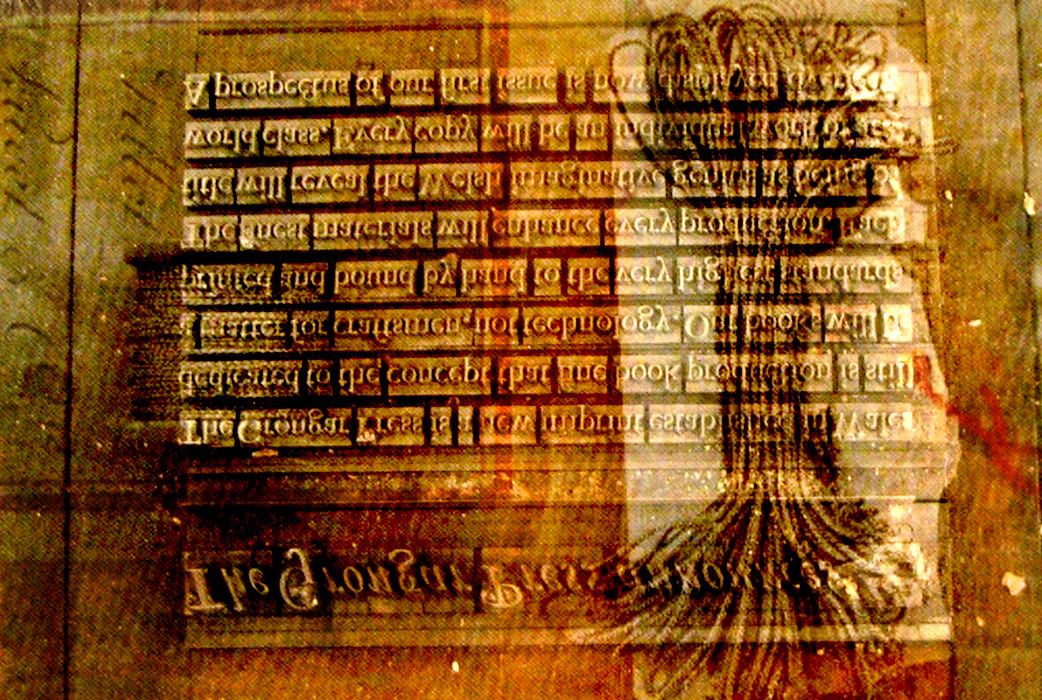 The Grongar Press announces
The Grongar Press is a new imprint established in Wales
dedicated to the concept that fine book production is still
a matter for craftsmen, not technology. Our books will be
printed and bound by hand to the very highest standards
The finest materials will enhance every production. Each
title will reveal the Welsh imaginative genius as being of
world class. Every copy will be an individual work of art
A prospectus of our first issue is now displayed